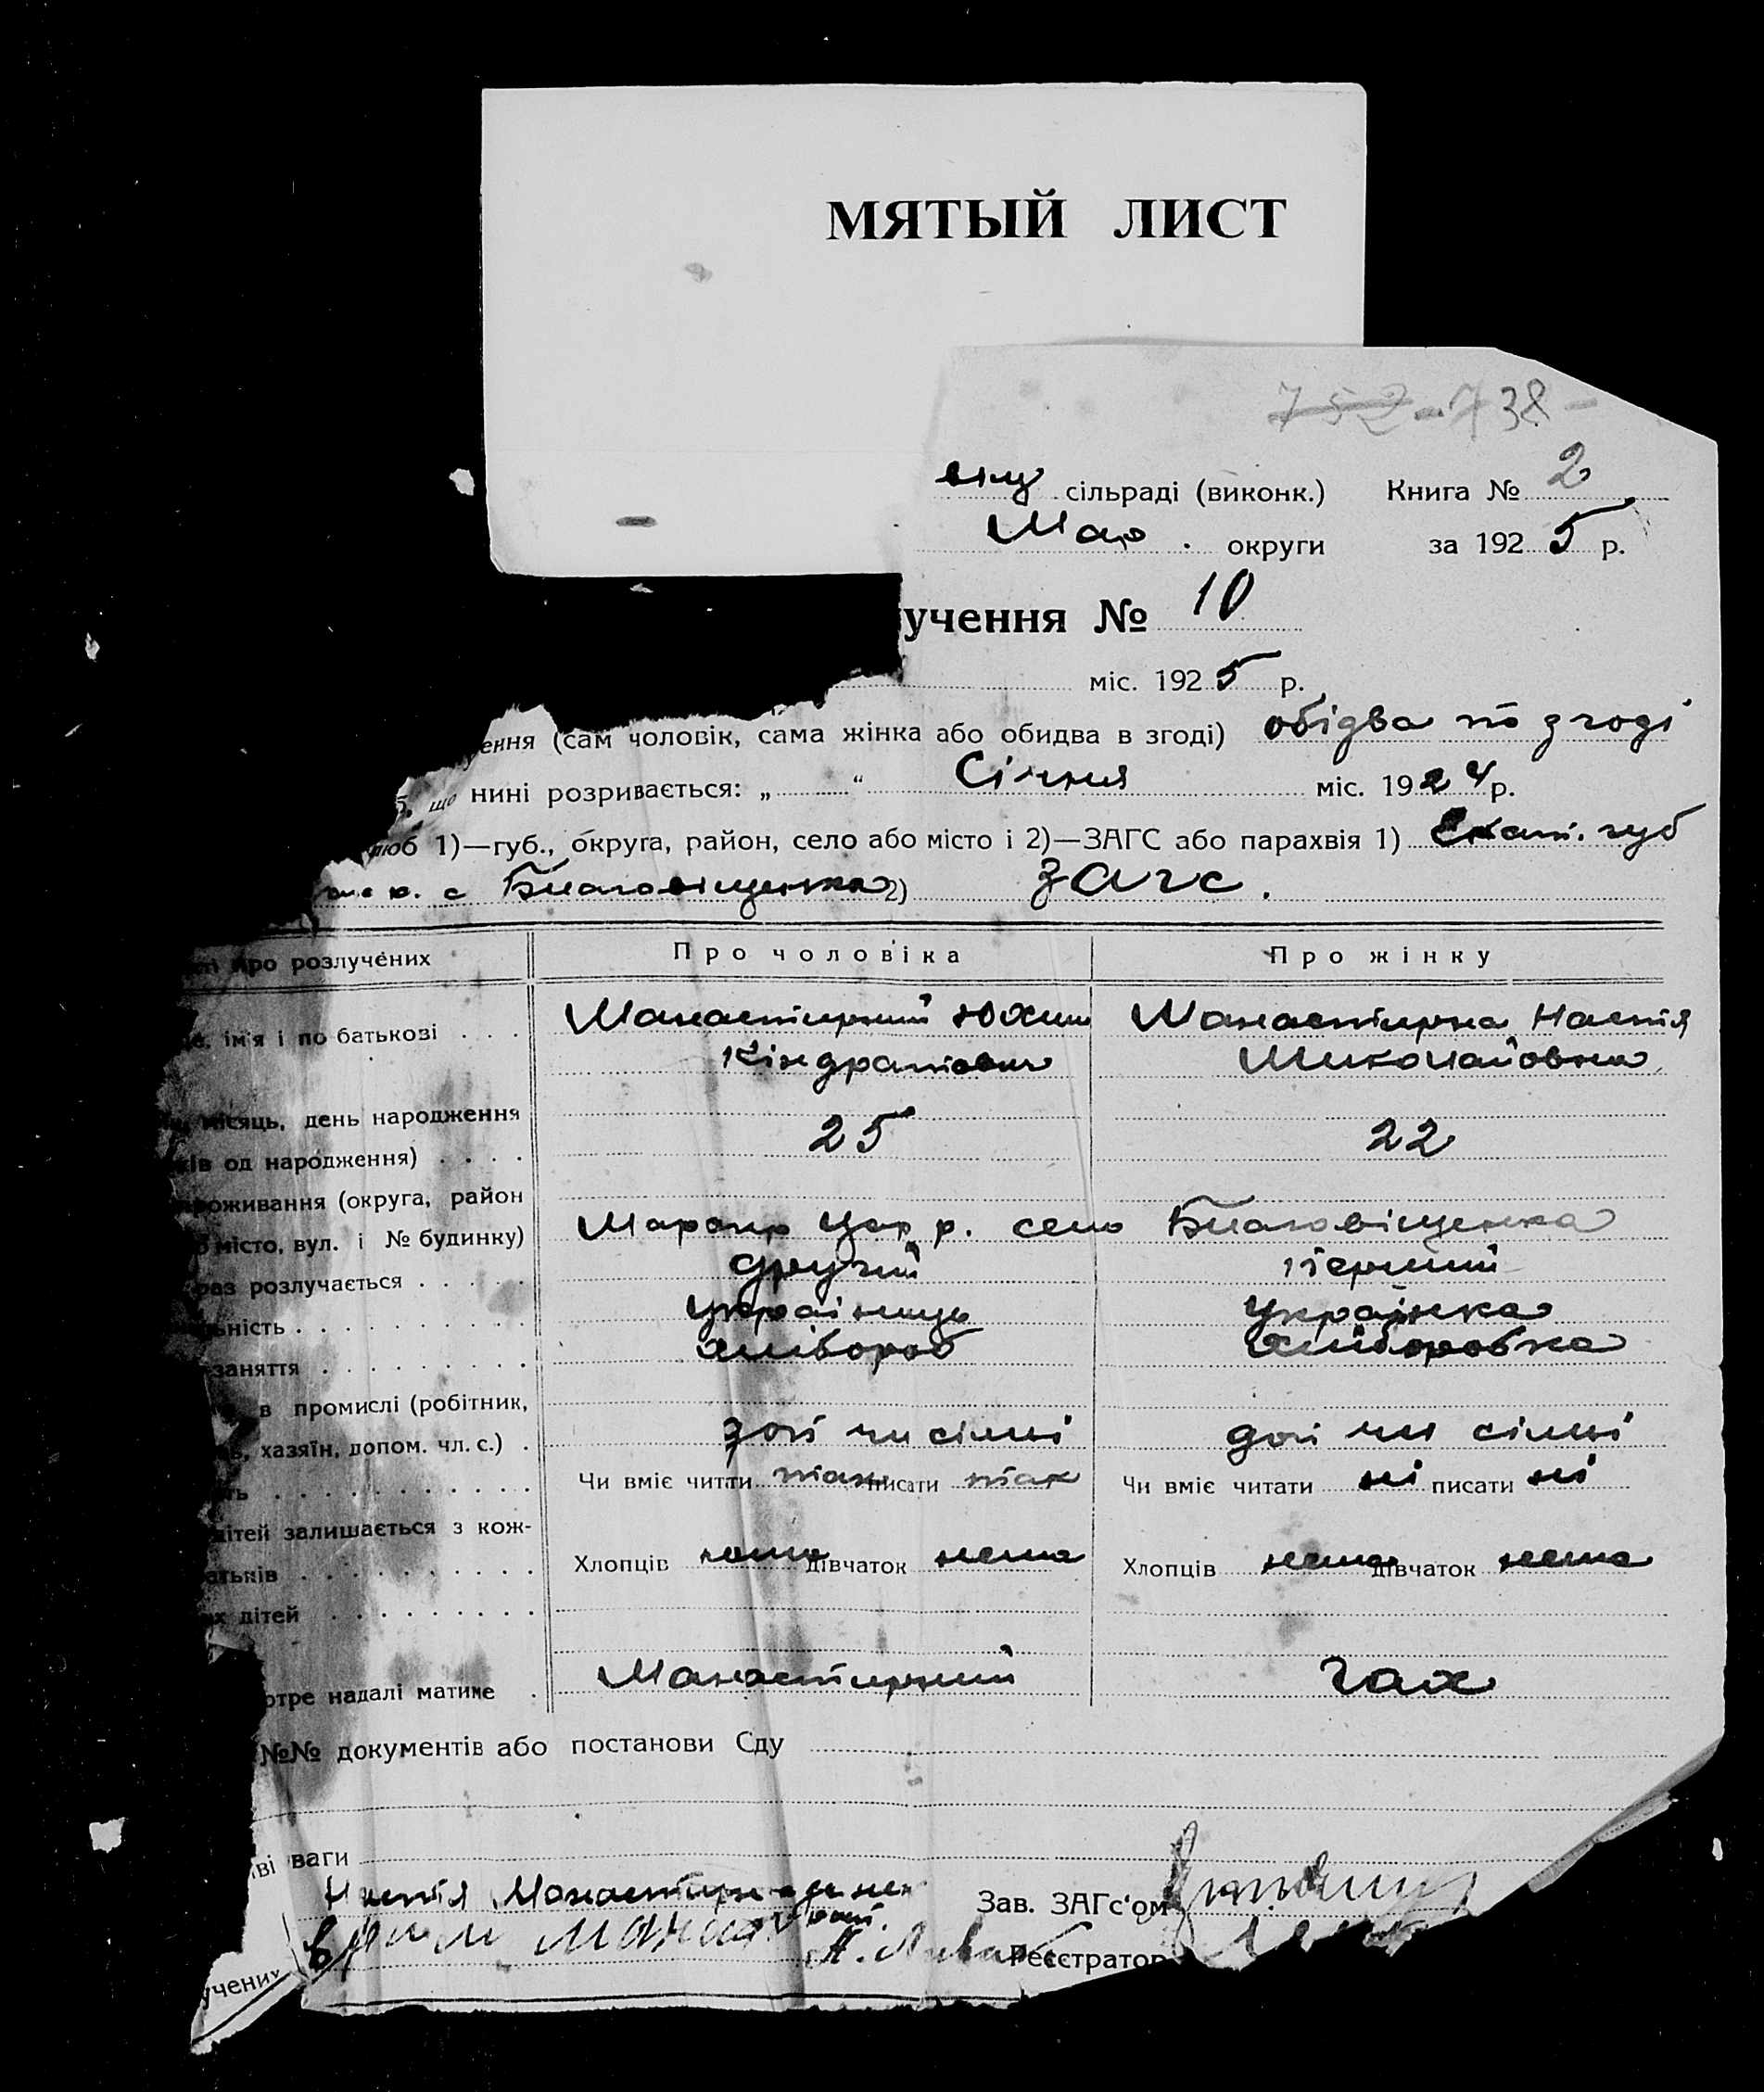 МЯТЫЙ ЛИСТ
752 - 738 -
сільраді (виконк.) Книга № 2
Мар. округи за 1925 р.
учення № 10
міс. 1925 р.
ення (сам чоловік, сама жінка або обидва в згоді) обідва по згоді
що нині розривається: „ “ Січня міс. 1924 р.
люб 1)—губ., округа, район, село або місто і 2)—ЗАГС або парахвія 1) Екат. губ
с Благовіщенка 2) Загс.
про розлучених Про чоловіка Про жінку
Манастирний Юхим Манастирна Настія
ім'я і по батькові . . . Кіндратович Миколайовна
місяць, день народження
ків од народження) . . . . 25 22
проживання (округа, район
місто, вул. і № будинку) Марокр Цар. р. село Благовіщенка
раз розлучається . . . . . другий перший
ність . . . . . . . . . . українець українка
заняття . . . . . . . . . хлібороб хліборобка
в промислі (робітник,
хазяїн, допом. чл. с.) . доп чл сімї доп чл сімї
ть . . . . . . . . . . . Чи вміє читати так писати так Чи вміє читати ні писати ні
дітей залишається з кож-
батьків . . . . . . . . . . Хлопців нема дівчаток нема Хлопців нема дівчаток нема
их дітей . . . . . . . . .
отре надалі матиме . Манастирний Гах
№№ документів або постанови Сду
ві ваги
Настія Манастирна
Зав. ЗАГс'ом
Реєстратор
учених